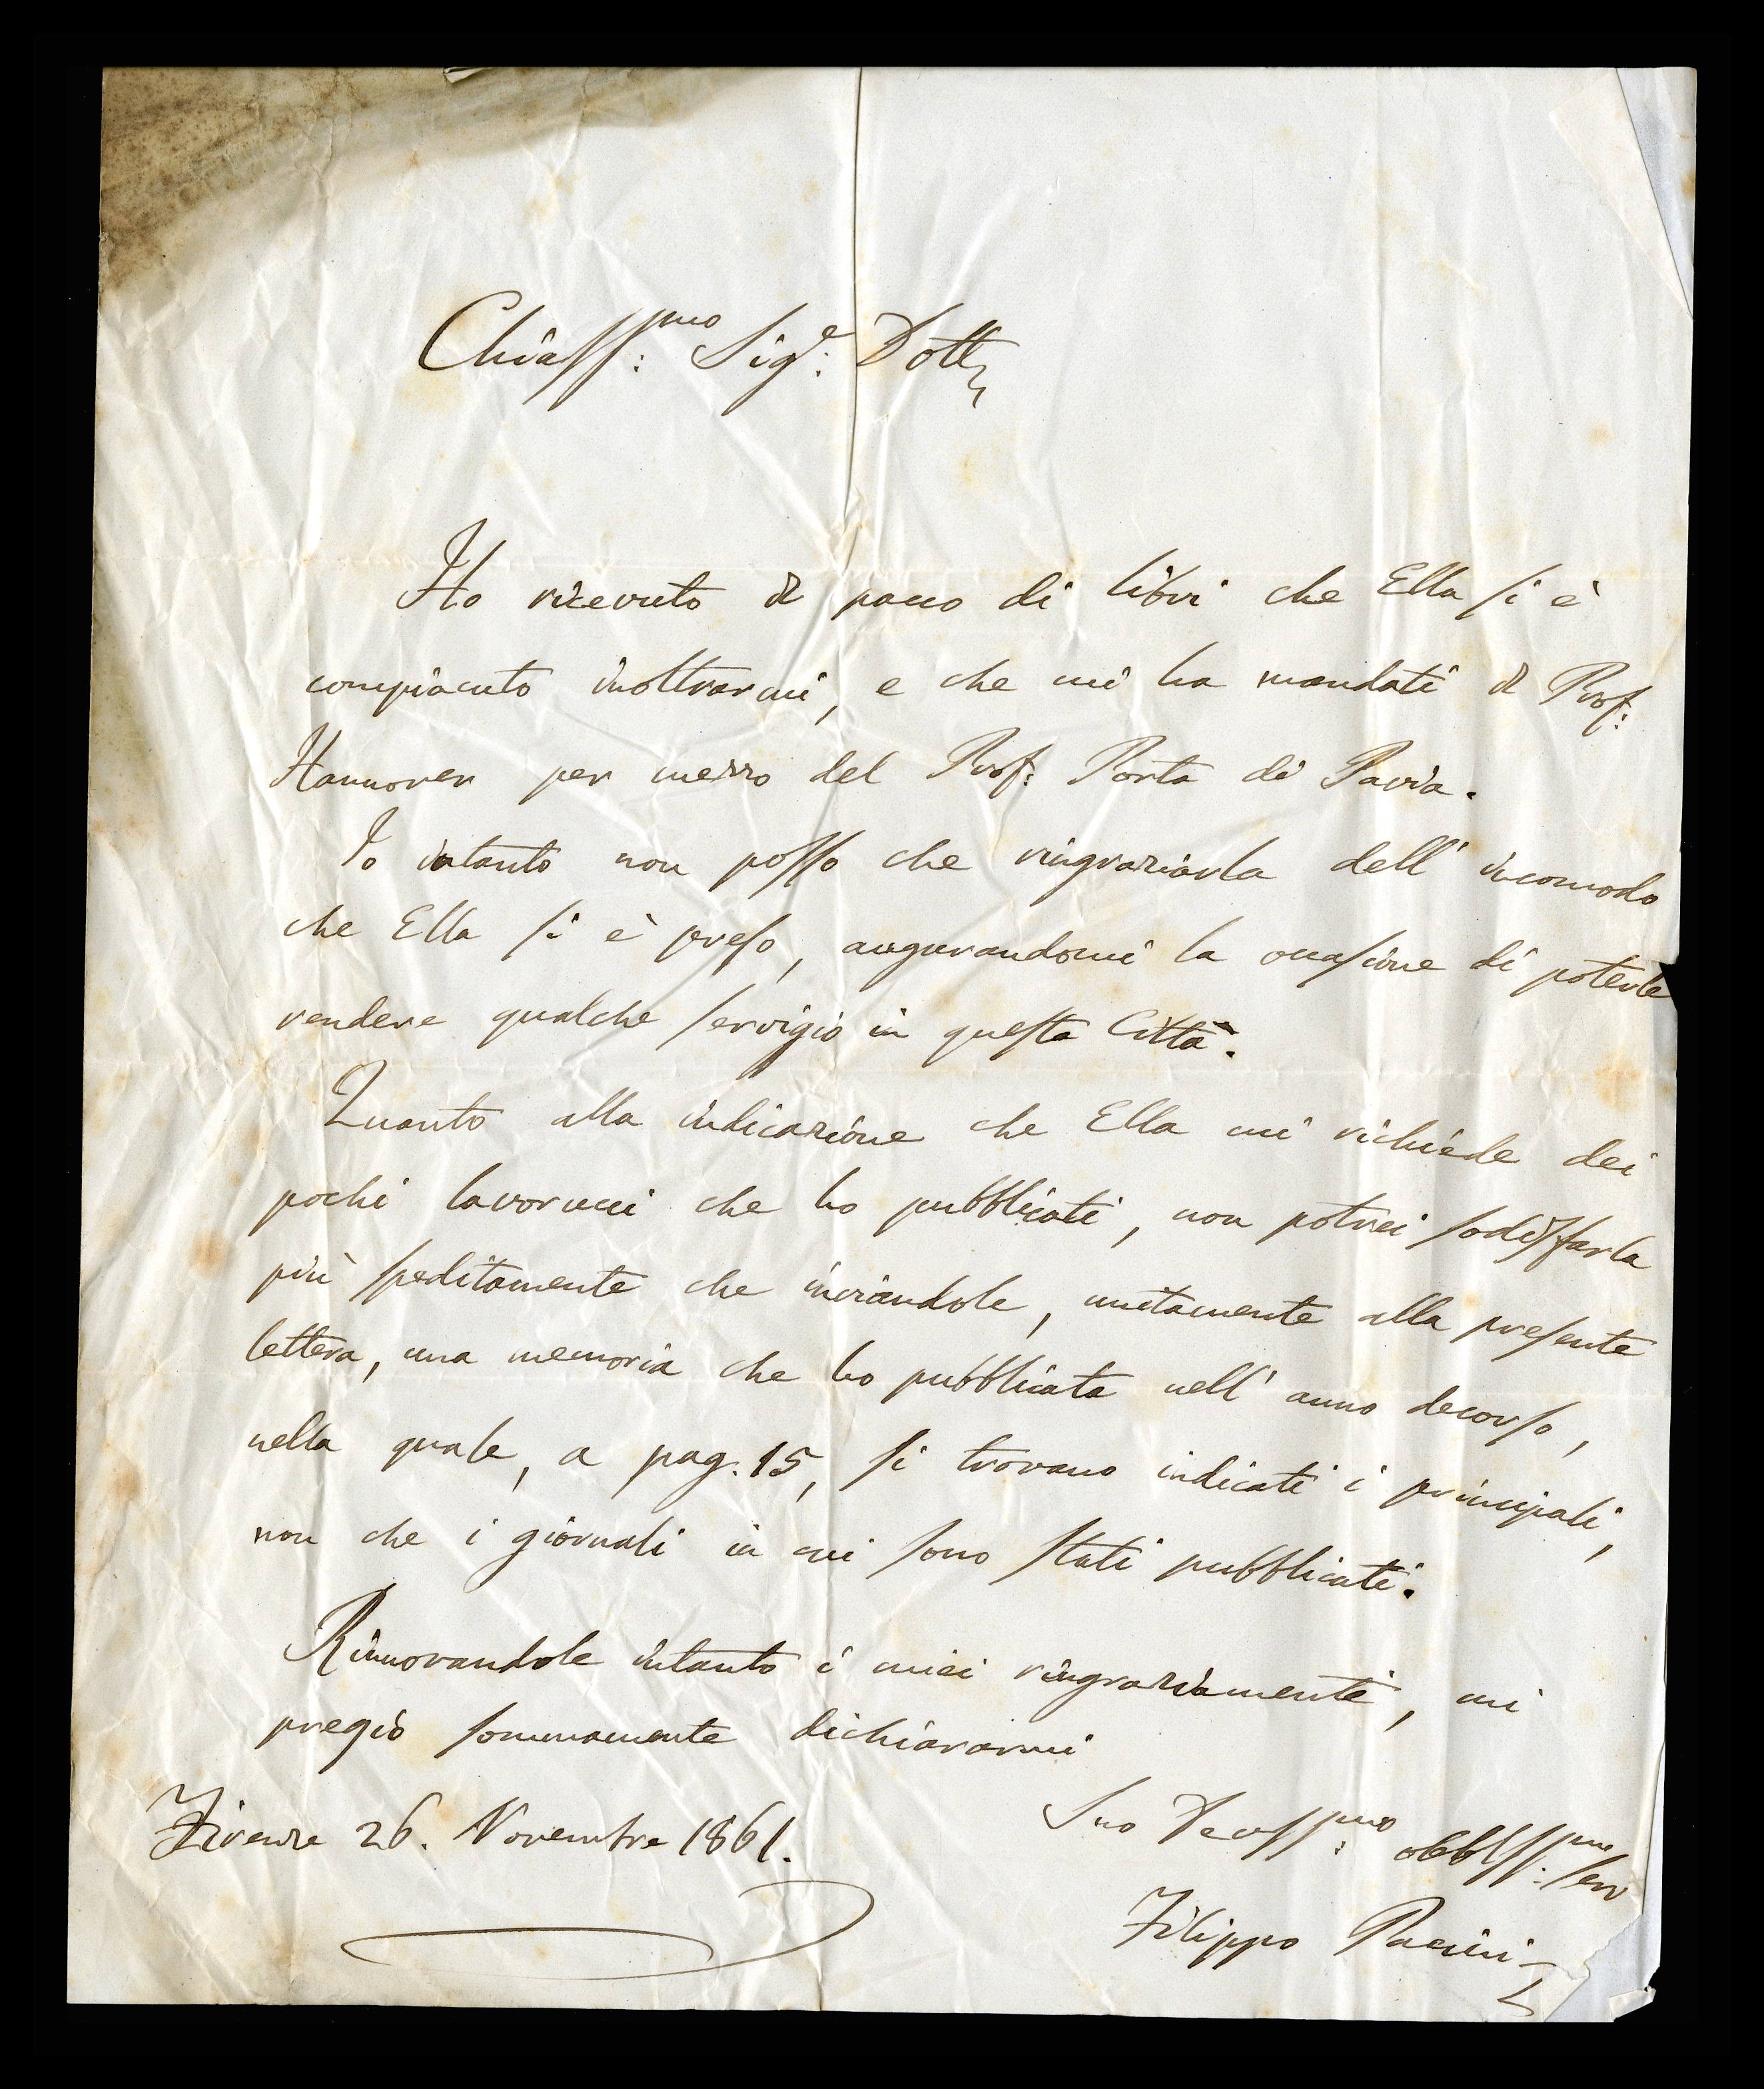 Chiariss:mo Sig:e Dott
Ho ricevuto il pacco di libri che Ella si è
compiaciuto inoltrarmi, e che mi ha mandati il Prof:
Hannover per mezzo del Prof: Porta di Pavia.
Io intanto non posso che ringraziarla dell' incomodo
che Ella si è preso, augurandomi la occasione di poterle
rendere qualche servigio in questa Città.
Quanto alla indicazione che Ella mi richiede dei
pochi lavorucci che ho pubblicati, non potrei sodisfarla
più speditamente che inviandole, unitamente alla presente
lettera, una memoria che ho pubblicata nell' anno decorso,
nella quale, a pag. 15, si trovano indicati i principali,
non che i giornali in cui sono stati pubblicati.
Rinnovandole intanto i miei ringraziamenti, mi
pregio sommamente dichiararmi
Firenze 26. Novembre 1861.
Suo Devss:mo obblss:mo serv
Filippo Pacini